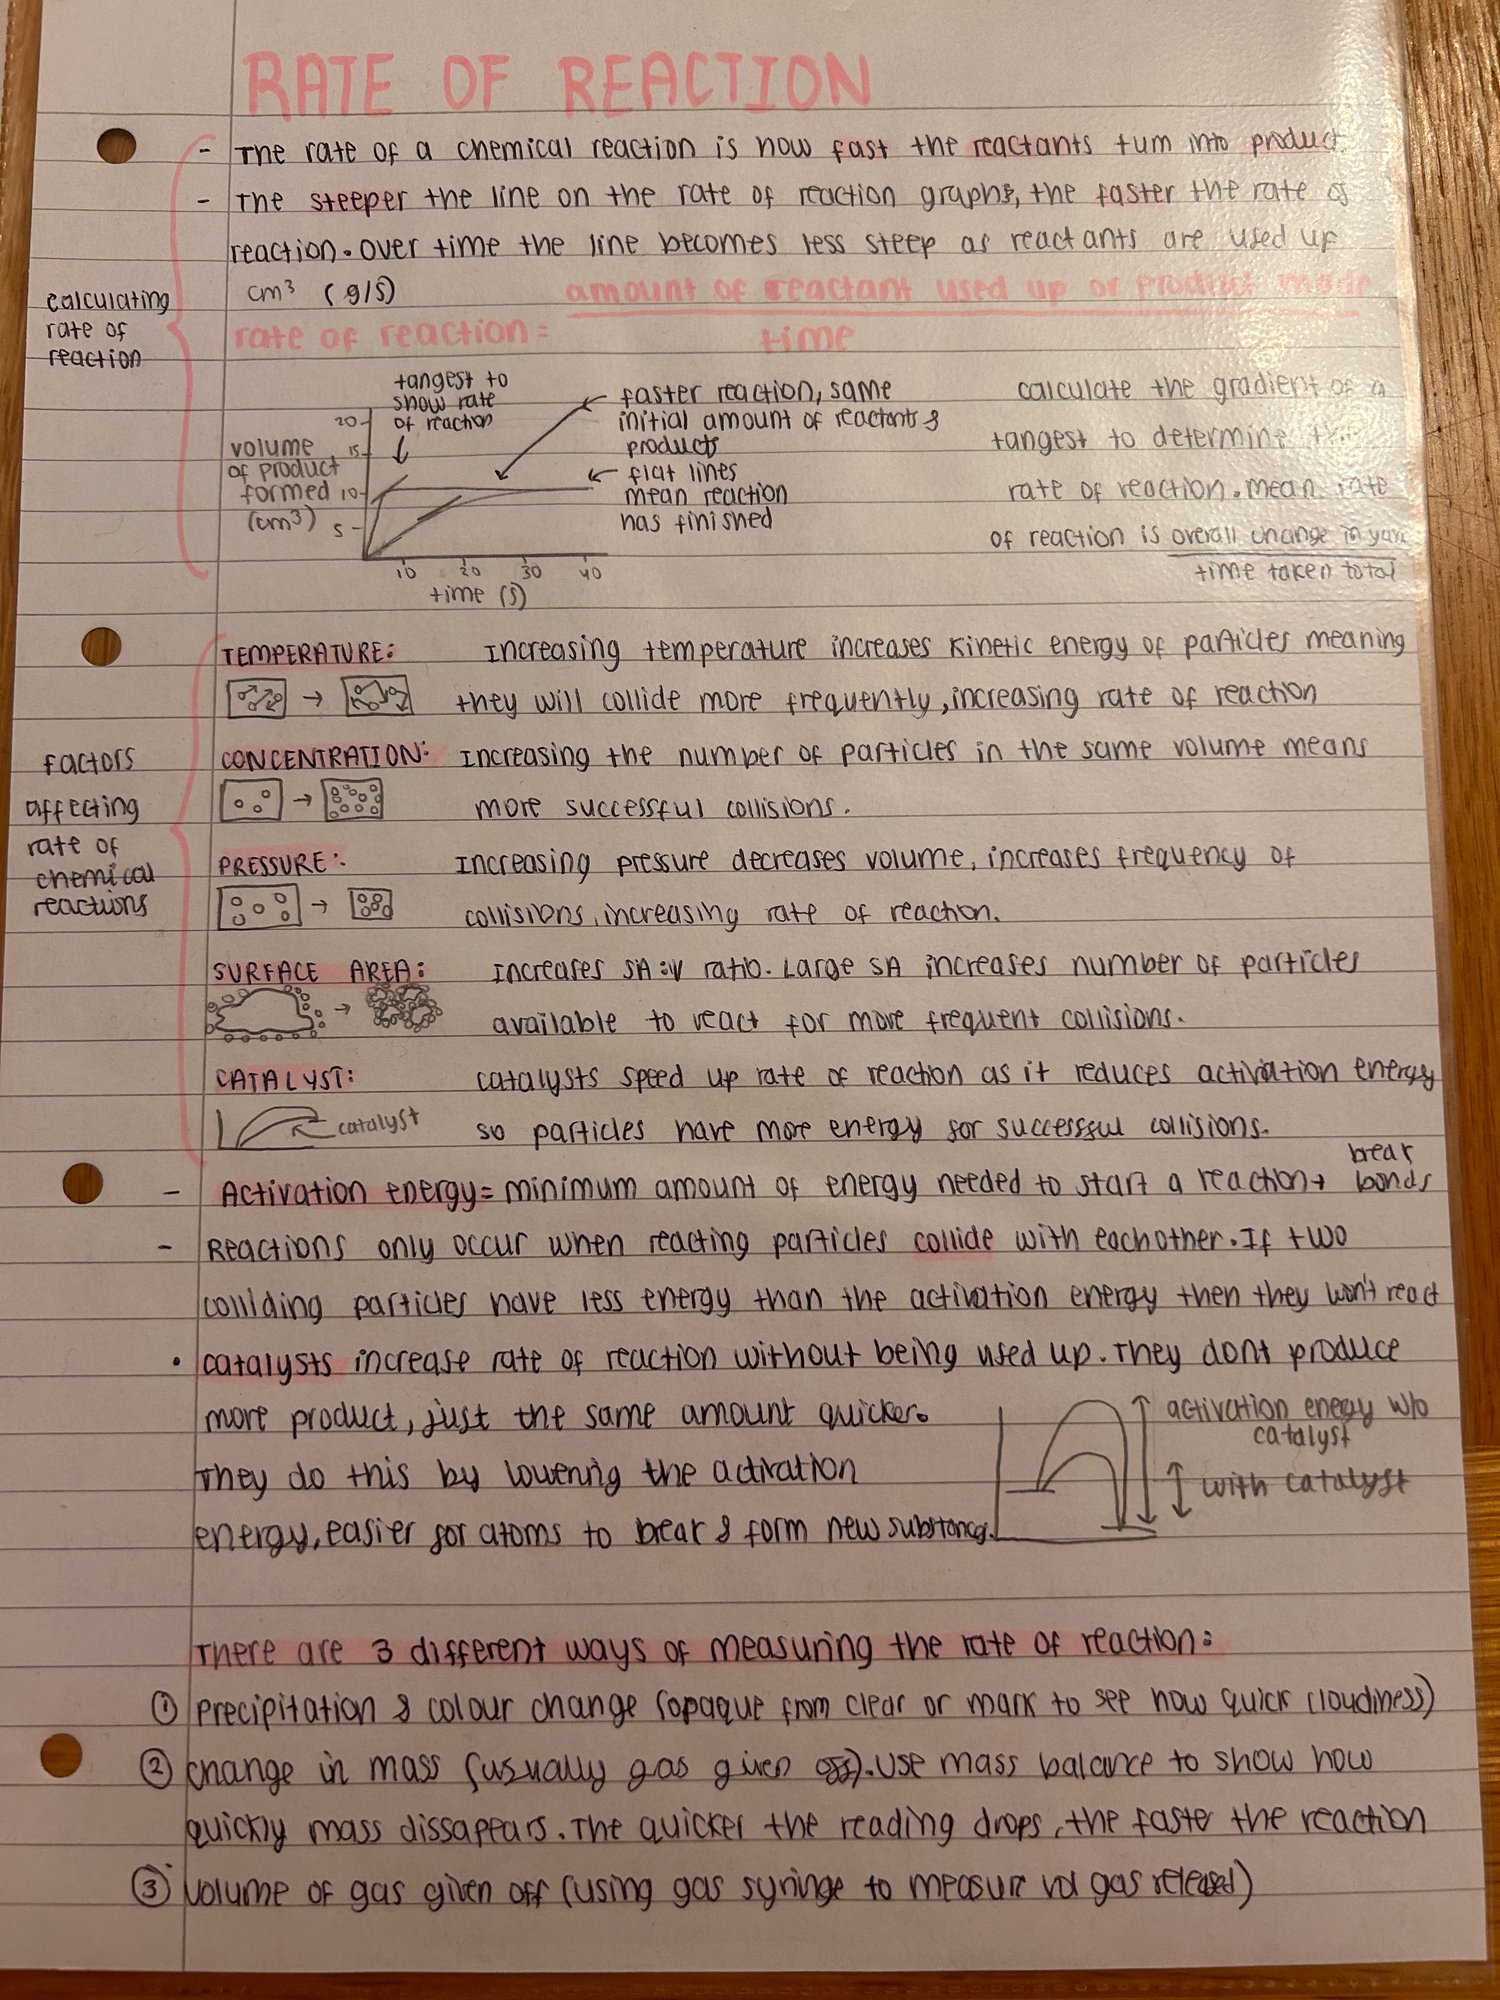 RATE OF REACTION
- The rate of a chemical reaction is how fast the reactants turn into product
- The steeper the line on the rate of reaction graphs, the faster the rate of
reaction. Over time the line becomes less steep as reactants are used up
calculating
rate of
reaction
cm³ (g/s)
rate of reaction = amount of reactant used up or product made
time
tangest to
show rate
of reaction
faster reaction, same
initial amount of reactants &
products
flat lines
mean reaction
has finished
volume
of product
formed
(cm3)
20
15
10
5
10 20 30 40
time (s)
calculate the gradient of a
tangest to determine the
rate of reaction. mean rate
of reaction is overall change in
time taken total
factors
affecting
rate of
chemical
reactions
TEMPERATURE: Increasing temperature increases kinetic energy of particles meaning
they will collide more frequently, increasing rate of reaction
CONCENTRATION: Increasing the number of particles in the same volume means
more successful collisions.
PRESSURE: Increasing pressure decreases volume, increases frequency of
collisions, increasing rate of reaction.
SURFACE AREA: Increases SA:V ratio. Large SA increases number of particles
available to react for more frequent collisions.
CATALYST: catalysts speed up rate of reaction as it reduces activation energy
catalyst so particles have more energy for successful collisions.
- Activation energy = minimum amount of energy needed to start a reaction + brear bonds
- Reactions only occur when reacting particles collide with eachother. If two
colliding particles have less energy than the activation energy then they won't react
• catalysts increase rate of reaction without being used up. They dont produce
more product, just the same amount quicker.
They do this by lowering the activation
energy, easier for atoms to brear & form new substances.
activation energy w/o
catalyst
with catalyst
There are 3 different ways of measuring the rate of reaction:
① precipitation & colour change (opaque from clear or mark to see how quick cloudiness)
② change in mass (usually gas given off). Use mass balance to show how
quickly mass dissapears. The quicker the reading drops, the faster the reaction
③ volume of gas given off (using gas syringe to measure vol gas released)